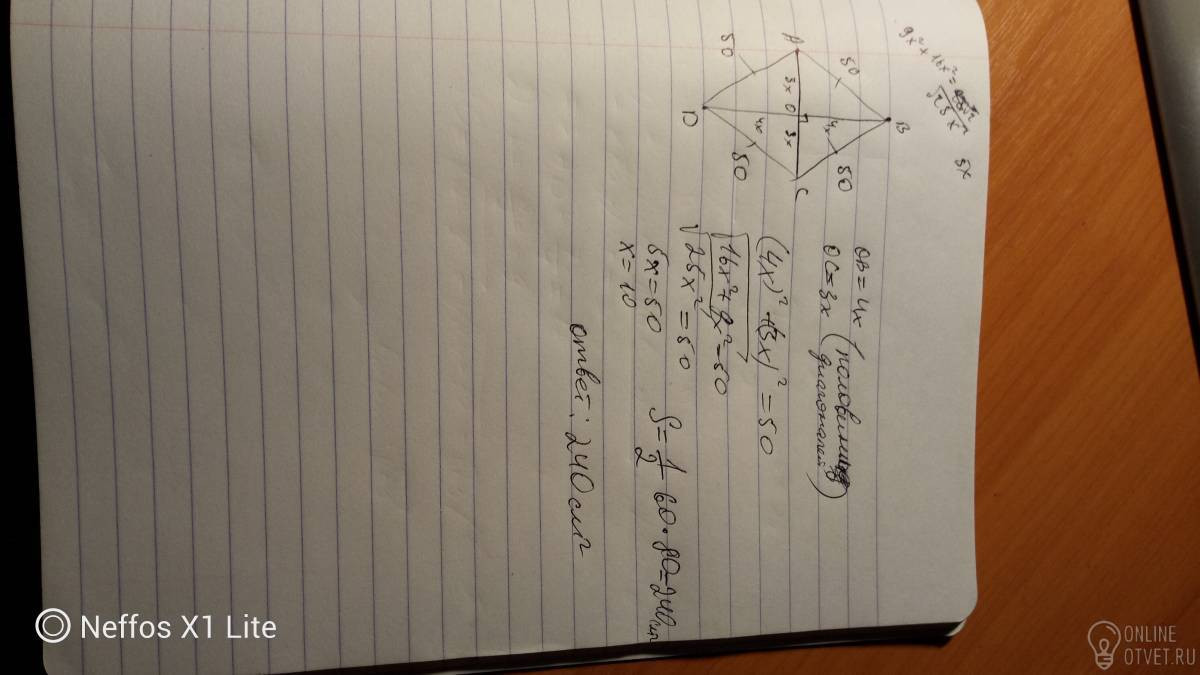 9x² + 16x² =
√25x
5x
A
B
C
D
O
50
50
50
50
3x
3x
4x
4x
OB = 4x (половины
OC = 3x диагоналей)
(4x)² + (3x)² = 50
√16x² + 9x² = 50
√25x² = 50
5x = 50
x = 10
S = 1/2 60 · 80 = 240 см²
ответ: 240 см²
Neffos X1 Lite
ONLINE
OTVET.RU